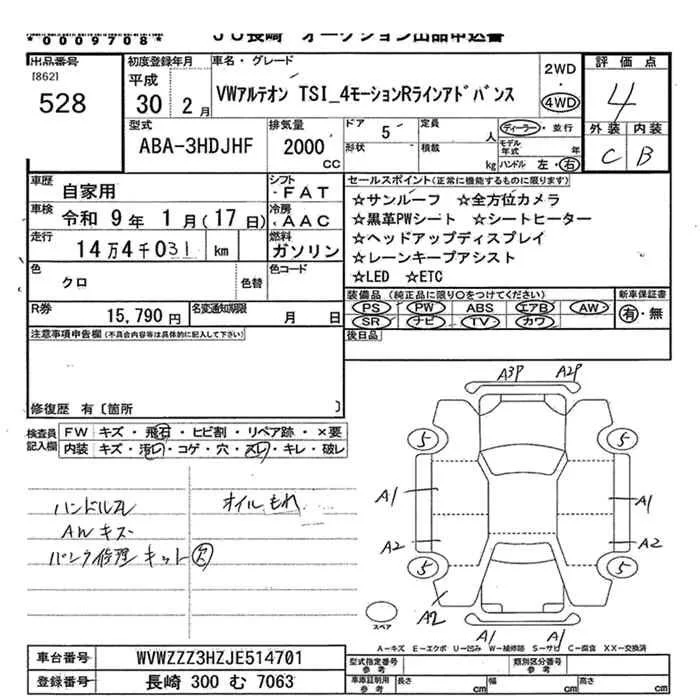 *0009708*
JU長崎 オークション出品申込書
出品番号
[862]
528
初度登録年月
平成
30年 2月
車名・グレード
VWアルテオン TSI_4モーションRラインアドバンス
2WD
4WD
評価点
4
外装 内装
C B
型式
ABA-3HDJHF
排気量
2000
CC
ドア 5
定員 人
形状
積載 kg
ディーラー・並行
モデル年式 年
ハンドル 左・右
車歴 自家用
シフト FAT
車検 令和 9年 1月(17日)
冷房 AAC
走行 14万4千031 km
燃料 ガソリン
色 クロ
色替
色コード
R券 15,790円
名変通知期限 月 日
セールスポイント(正常に機能するものに限ります)
☆サンルーフ ☆全方位カメラ
☆黒革PWシート ☆シートヒーター
☆ヘッドアップディスプレイ
☆レーンキープアシスト
☆LED ☆ETC
装備品(純正品に限り○をつけてください)
PS PW ABS エアB AW
SR ナビ TV カワ
新車保証書
有・無
後日品
注意事項申告欄(不具合内容等は具体的に記入して下さい)
修復歴 有〔箇所 〕
検査員記入欄
FW キズ・飛石・ヒビ割・リペア跡・×要
内装 キズ・汚レ・コゲ・穴・スレ・キレ・破レ
ハンドルスレ
AWキズ
パンク修理キット欠
オイルもれ
A3P A2P
5 5
A1 A1
A2 A2
5 5
A2
A1 A1
スペア
A-キズ E-エクボ U-凹み W-補修跡 S-サビ C-腐食 XX-交換済
車台番号 WVWZZZ3HZJE514701
登録番号 長崎 300 む 7063
型式指定番号 参考
類別区分番号 参考
車庫証明用 参考
長さ cm
幅 cm
高さ cm